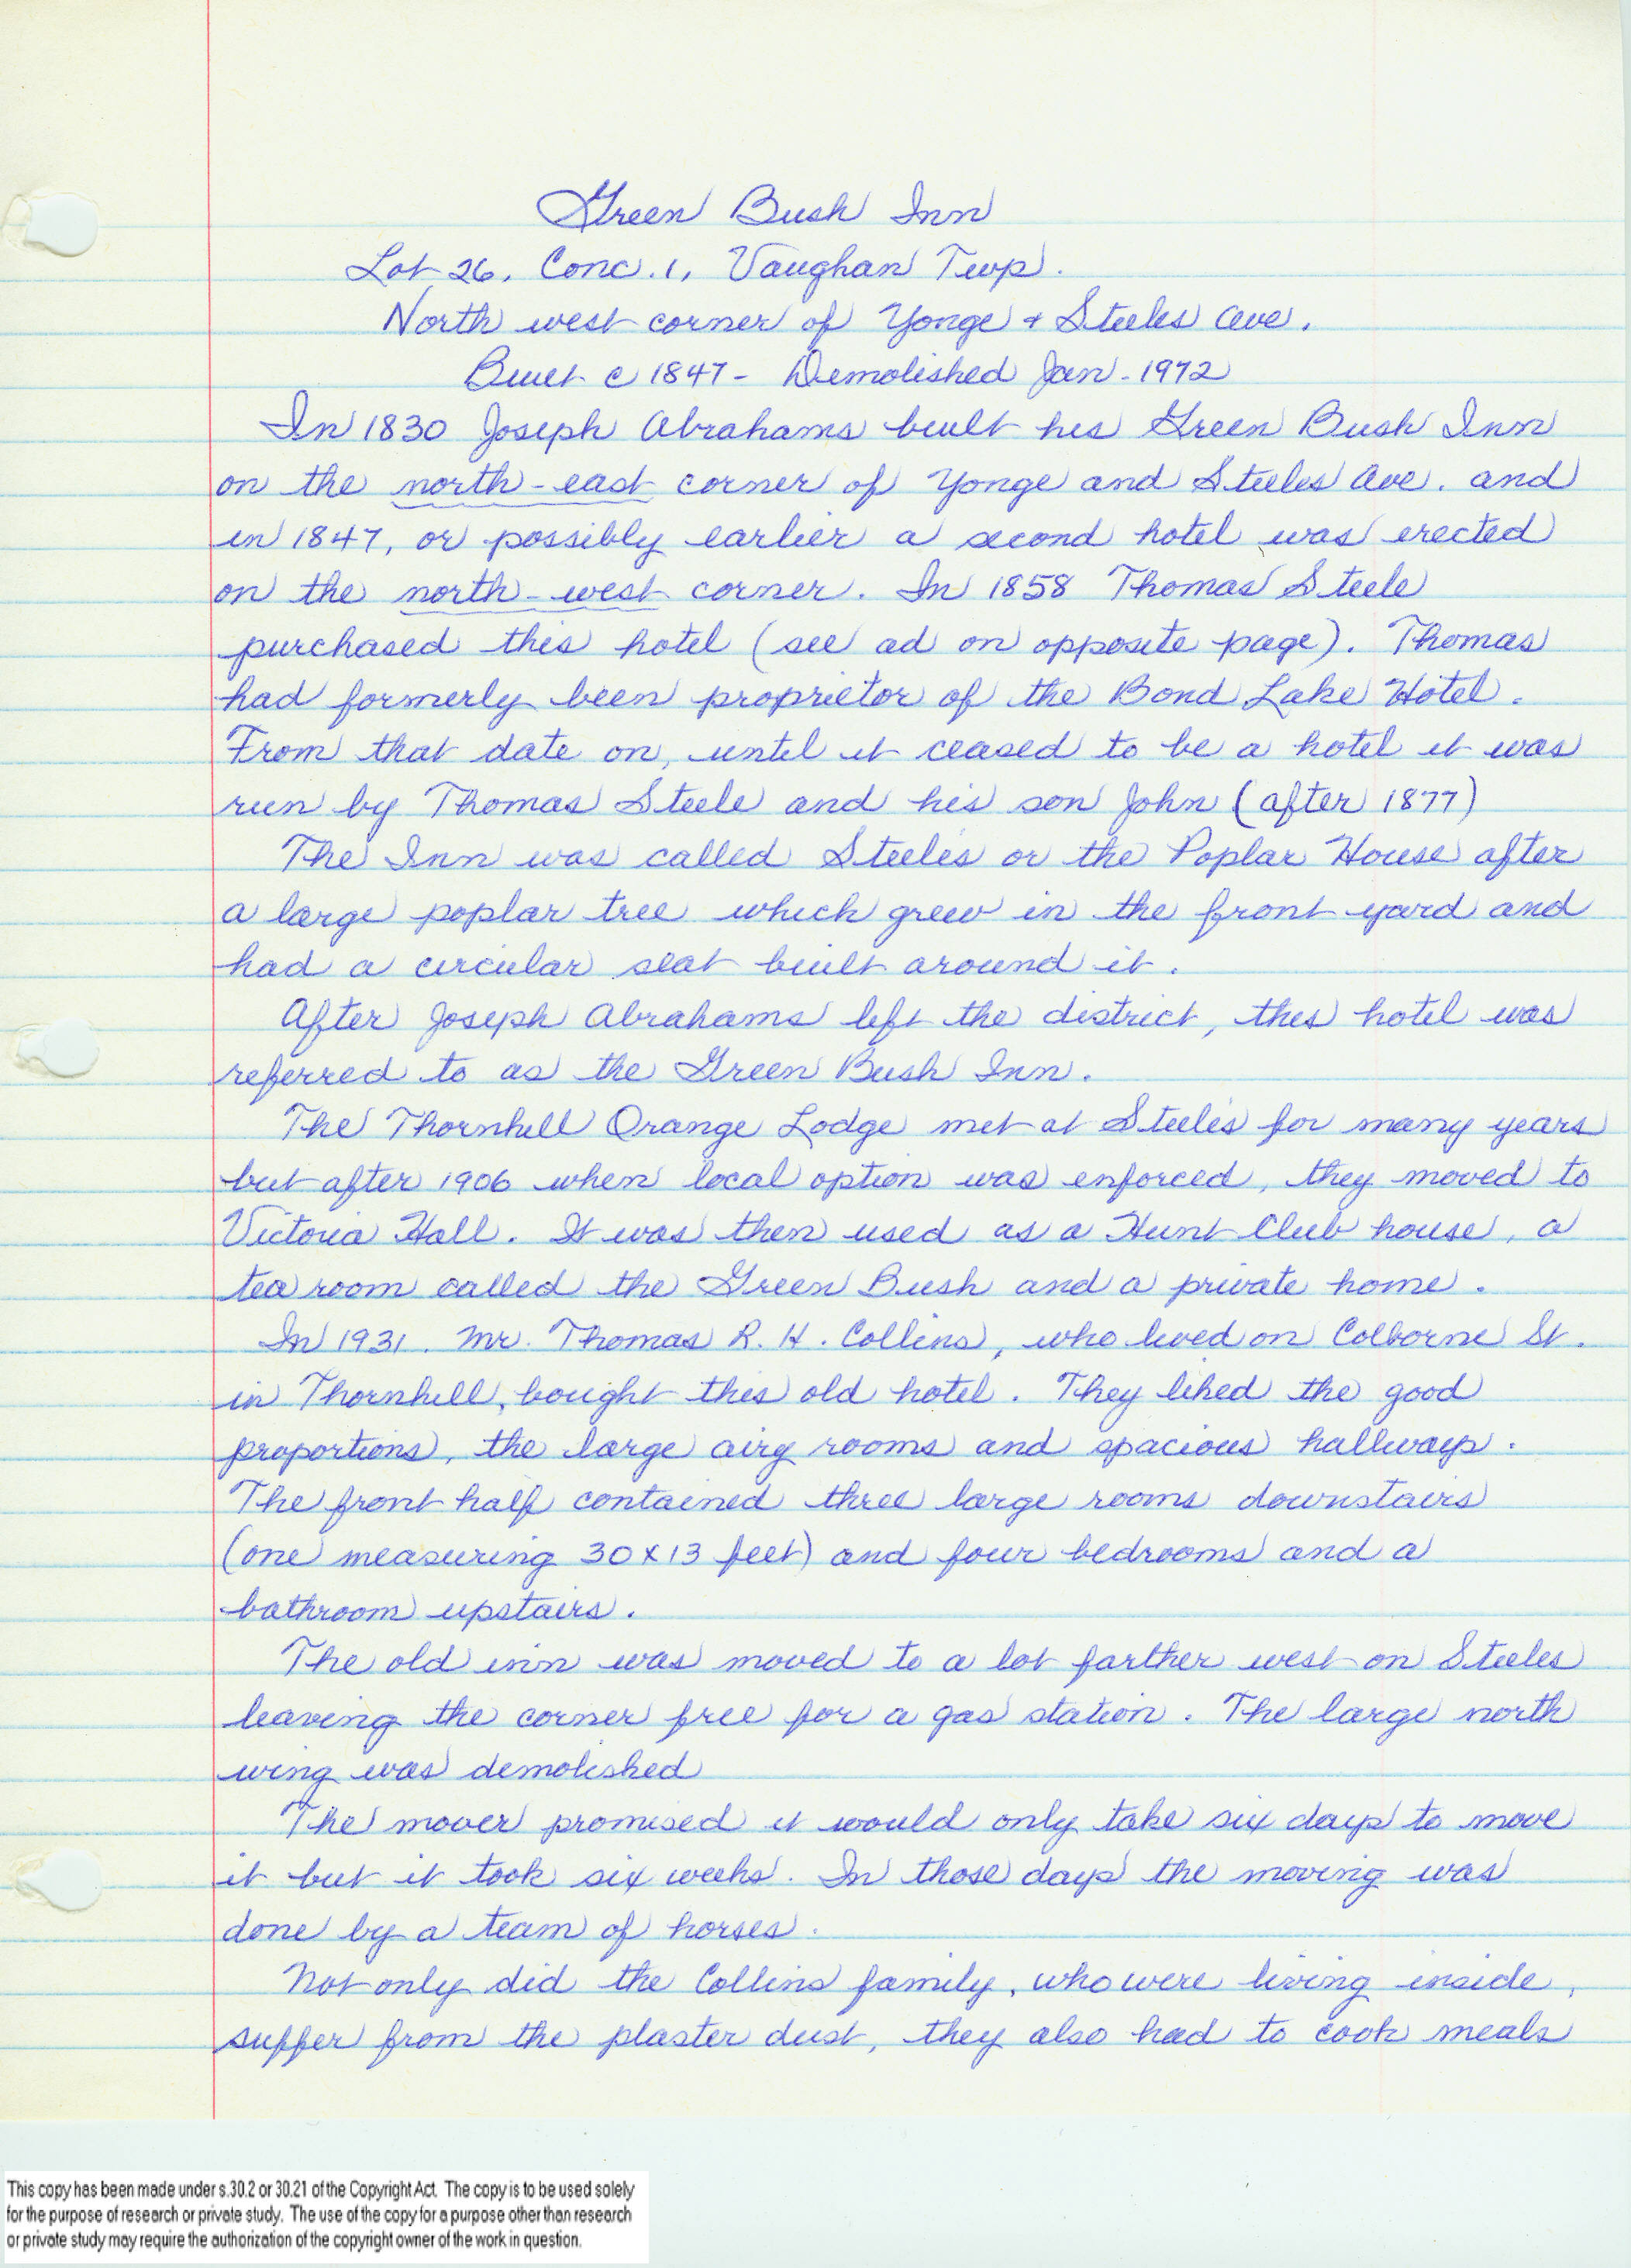 Green Bush Inn
Lot 26, Conc. 1, Vaughan Twp.
North west corner of Yonge + Steeles Ave.
Built c 1847 - Demolished Jan. 1972
In 1830 Joseph Abrahams built his Green Bush Inn
on the north-east corner of Yonge and Steeles Ave. and
in 1847, or possibly earlier a second hotel was erected
on the north-west corner. In 1858 Thomas Steele
purchased this hotel (see ad on opposite page). Thomas
had formerly been proprietor of the Bond Lake Hotel.
From that date on, until it ceased to be a hotel it was
run by Thomas Steele and his son John (after 1877)
The Inn was called Steele's or the Poplar House after
a large poplar tree which grew in the front yard and
had a circular seat built around it.
After Joseph Abrahams left the district, this hotel was
referred to as the Green Bush Inn.
The Thornhill Orange Lodge met at Steele's for many years
but after 1906 when local option was enforced, they moved to
Victoria Hall. It was then used as a Hunt Club house, a
tea room called the Green Bush and a private home.
In 1931. Mr. Thomas R. H. Collins, who lived on Colborne St.
in Thornhill, bought this old hotel. They liked the good
proportions, the large airy rooms and spacious hallways.
The front half contained three large rooms downstairs
(one measuring 30 x 13 feet) and four bedrooms and a
bathroom upstairs.
The old inn was moved to a lot farther west on Steeles
leaving the corner free for a gas station. The large north
wing was demolished
The mover promised it would only take six days to move
it but it took six weeks. In those days the moving was
done by a team of horses.
Not only did the Collins family, who were living inside,
suffer from the plaster dust, they also had to cook meals
This copy has been made under s.30.2 or 30.21 of the Copyright Act. The copy is to be used solely
for the purpose of research or private study. The use of the copy for a purpose other than research
or private study may require the authorization of the copyright owner of the work in question.